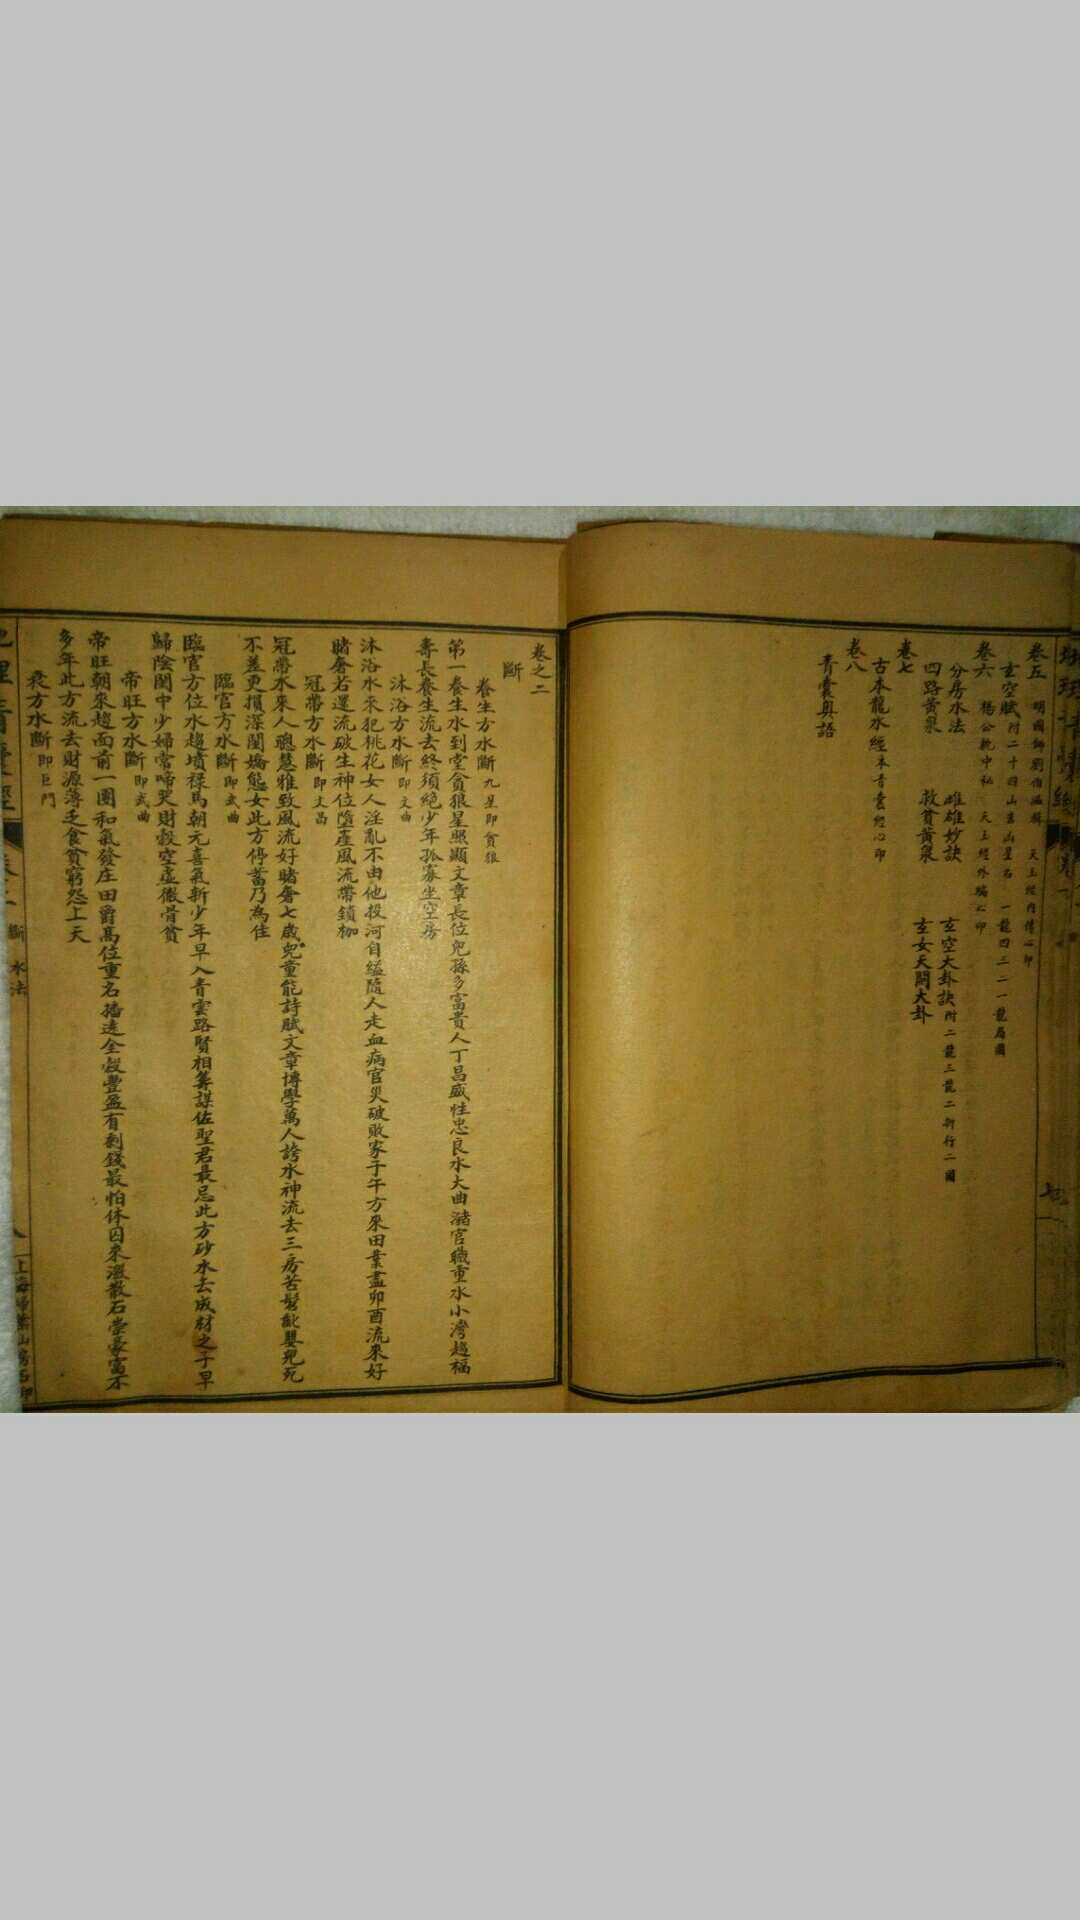 卷五　明國師劉伯溫輯　天玉經內傳心印
玄空賦附二十四山吉山星名　一龍四三二一龍局圖
卷六　楊公軌中秘　天玉經外編心印
分房水法　雌雄妙訣　玄空大卦訣附二龍三龍二新行二圖
四路黃泉　救貧黃泉　玄女天關大卦
卷七
古本龍水經本青囊經心印
卷八
青囊奥語
卷之二
斷
養生方水斷九星即貪狼
第一養生水到堂貪狼星照顯文章長位兒孫多富貴人丁昌盛性忠良水大曲瀦官職重水小灣趨福
壽長養生流去終須絕少年孤寡坐空房
沐浴方水斷即文曲
沐浴水來犯桃花女人淫亂不由他投河自縊隨人走血病官災破敗家子午方來田業盡卯酉流來好
賭奢若還流破生神位墮產風流帶鎖枷
冠帶方水斷即文昌
冠帶水來人聰慧雅致風流好賭奢七歲兒童能詩賦文章博學萬人誇水神流去三房苦髫齔嬰兒死
不差更損深閨嬌態女此方停蓄乃為佳
臨官方水斷即武曲
臨官方位水趨墳祿馬朝元喜氣新少年早入青雲路賢相籌謀佐聖君最忌此方砂水去成材之子早
歸陰閨中少婦常啼哭財穀空虛徹骨貧
帝旺方水斷即武曲
帝旺朝來趨面前一團和氣發庄田爵高位重名播遠金穀豐盈有剩錢最怕休囚來激散石崇豪富不
多年此方流去財源薄乏食貧窮怨上天
衰方水斷即巨門
地理青囊經　卷二　斷　水法　八　上海掃葉山房石印